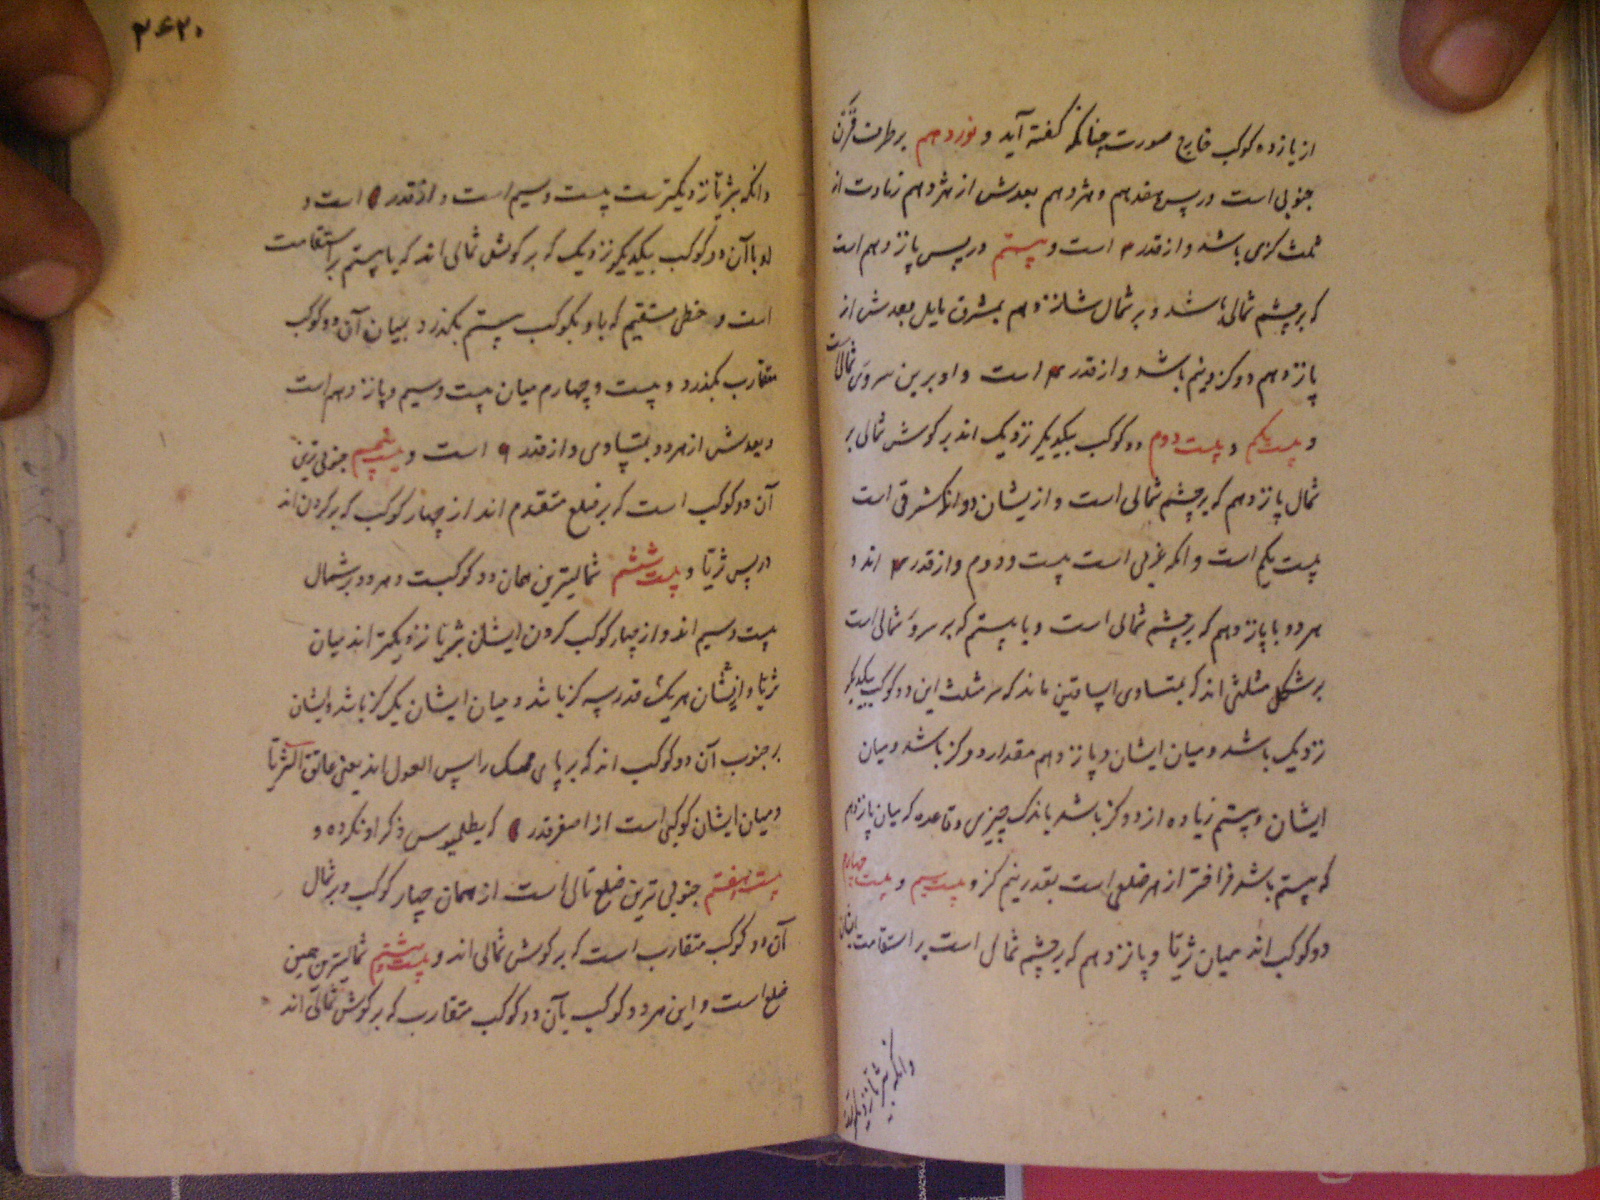 از یازده کوکب خارج صورت چنانکه گفته آید و نوزدهم بر طرف قرن
جنوبی است در پس هفدهم و هژدهم بعدش از هژدهم زیادت از
ثلث گزی باشد و از قدر ۴ است و بیستم در پس پانزدهم است
که بر چشم شمالی باشد و بر شمال شانزدهم بمشرق مایل بعدش از
پانزدهم دو گز و نیم باشد و از قدر ۴ است و او بر بن سروی شمالی است
و بیست یکم و بیست دوم دو کوکب بیکدیگر نزدیک اند بر گوش شمالی بر
شمال پانزدهم که بر چشم شمالی است و ازیشان دو آنکه شرقی است
بیست یکم است و آنکه غربی است بیست و دوم و از قدر ۴ اند و
هر دو با پانزدهم که بر چشم شمالی است و با بیستم که بر سرو شمالی است
بر شکل مثلثی اند که بمتساوی الساقین ماند که سر مثلث این دو کوکب بیکدیگر
نزدیک باشد و میان ایشان و پانزدهم مقدار دو گز باشد و میان
ایشان و بیستم زیاده از دو گز باشد باندک چیزی و قاعده که میان پانزدهم
که بیستم باشد فراختر از هر ضلعی است بقدر نیم گز و بیست سیم و بیست چهارم
دو کوکب اند میان ثریا و پانزدهم که بر چشم شمالی است بر استقامت ایشان
وانکه بثریا نزدیکترست
۲۶۲۰
وانکه بثریا نزدیکترست بیست و سیم است و از قدر است و
او با آن دو کوکب بیکدیگر نزدیک که بر گوش شمالی اند که با بیستم بر استقامت
است و خطی مستقیم که باو بکوکب بیستم بگذرد بمیان آن دو کوکب
متقارب بگذرد و بیست و چهارم میان بیست و سیم و پانزدهم است
و بعدش از هر دو بتساوی و از قدر ۹ است و بیست پنجم جنوبی ترین
آن دو کوکب است که بر ضلع متقدم اند از چهار کوکب که بر گردن اند
در پس ثریا و بیست ششم شمالیترین همان دو کوکبست و هر دو بر شمال
بیست و سیم اند و از چهار کوکب گردن ایشان بثریا نزدیکتر اند میان
ثریا و ازیشان هر یک قدر سه گز باشد و میان ایشان یک گز باشد و ایشان
بر جنوب آن دو کوکب اند که بر پای ممسک راس الغول اند یعنی عاتق الثریا
و میان ایشان کوکبی است از اصغر قدر که بطلمیوس ذکر او نکرده و
بیست و هفتم جنوبی ترین ضلع تالی است از همان چهار کوکب و بر شمال
آن دو کوکب متقارب است که بر گوش شمالی اند و بیست و هشتم شمالیترین همین
ضلع است و این هر دو کوکب بآن دو کوکب متقارب که بر گوش شمالی اند